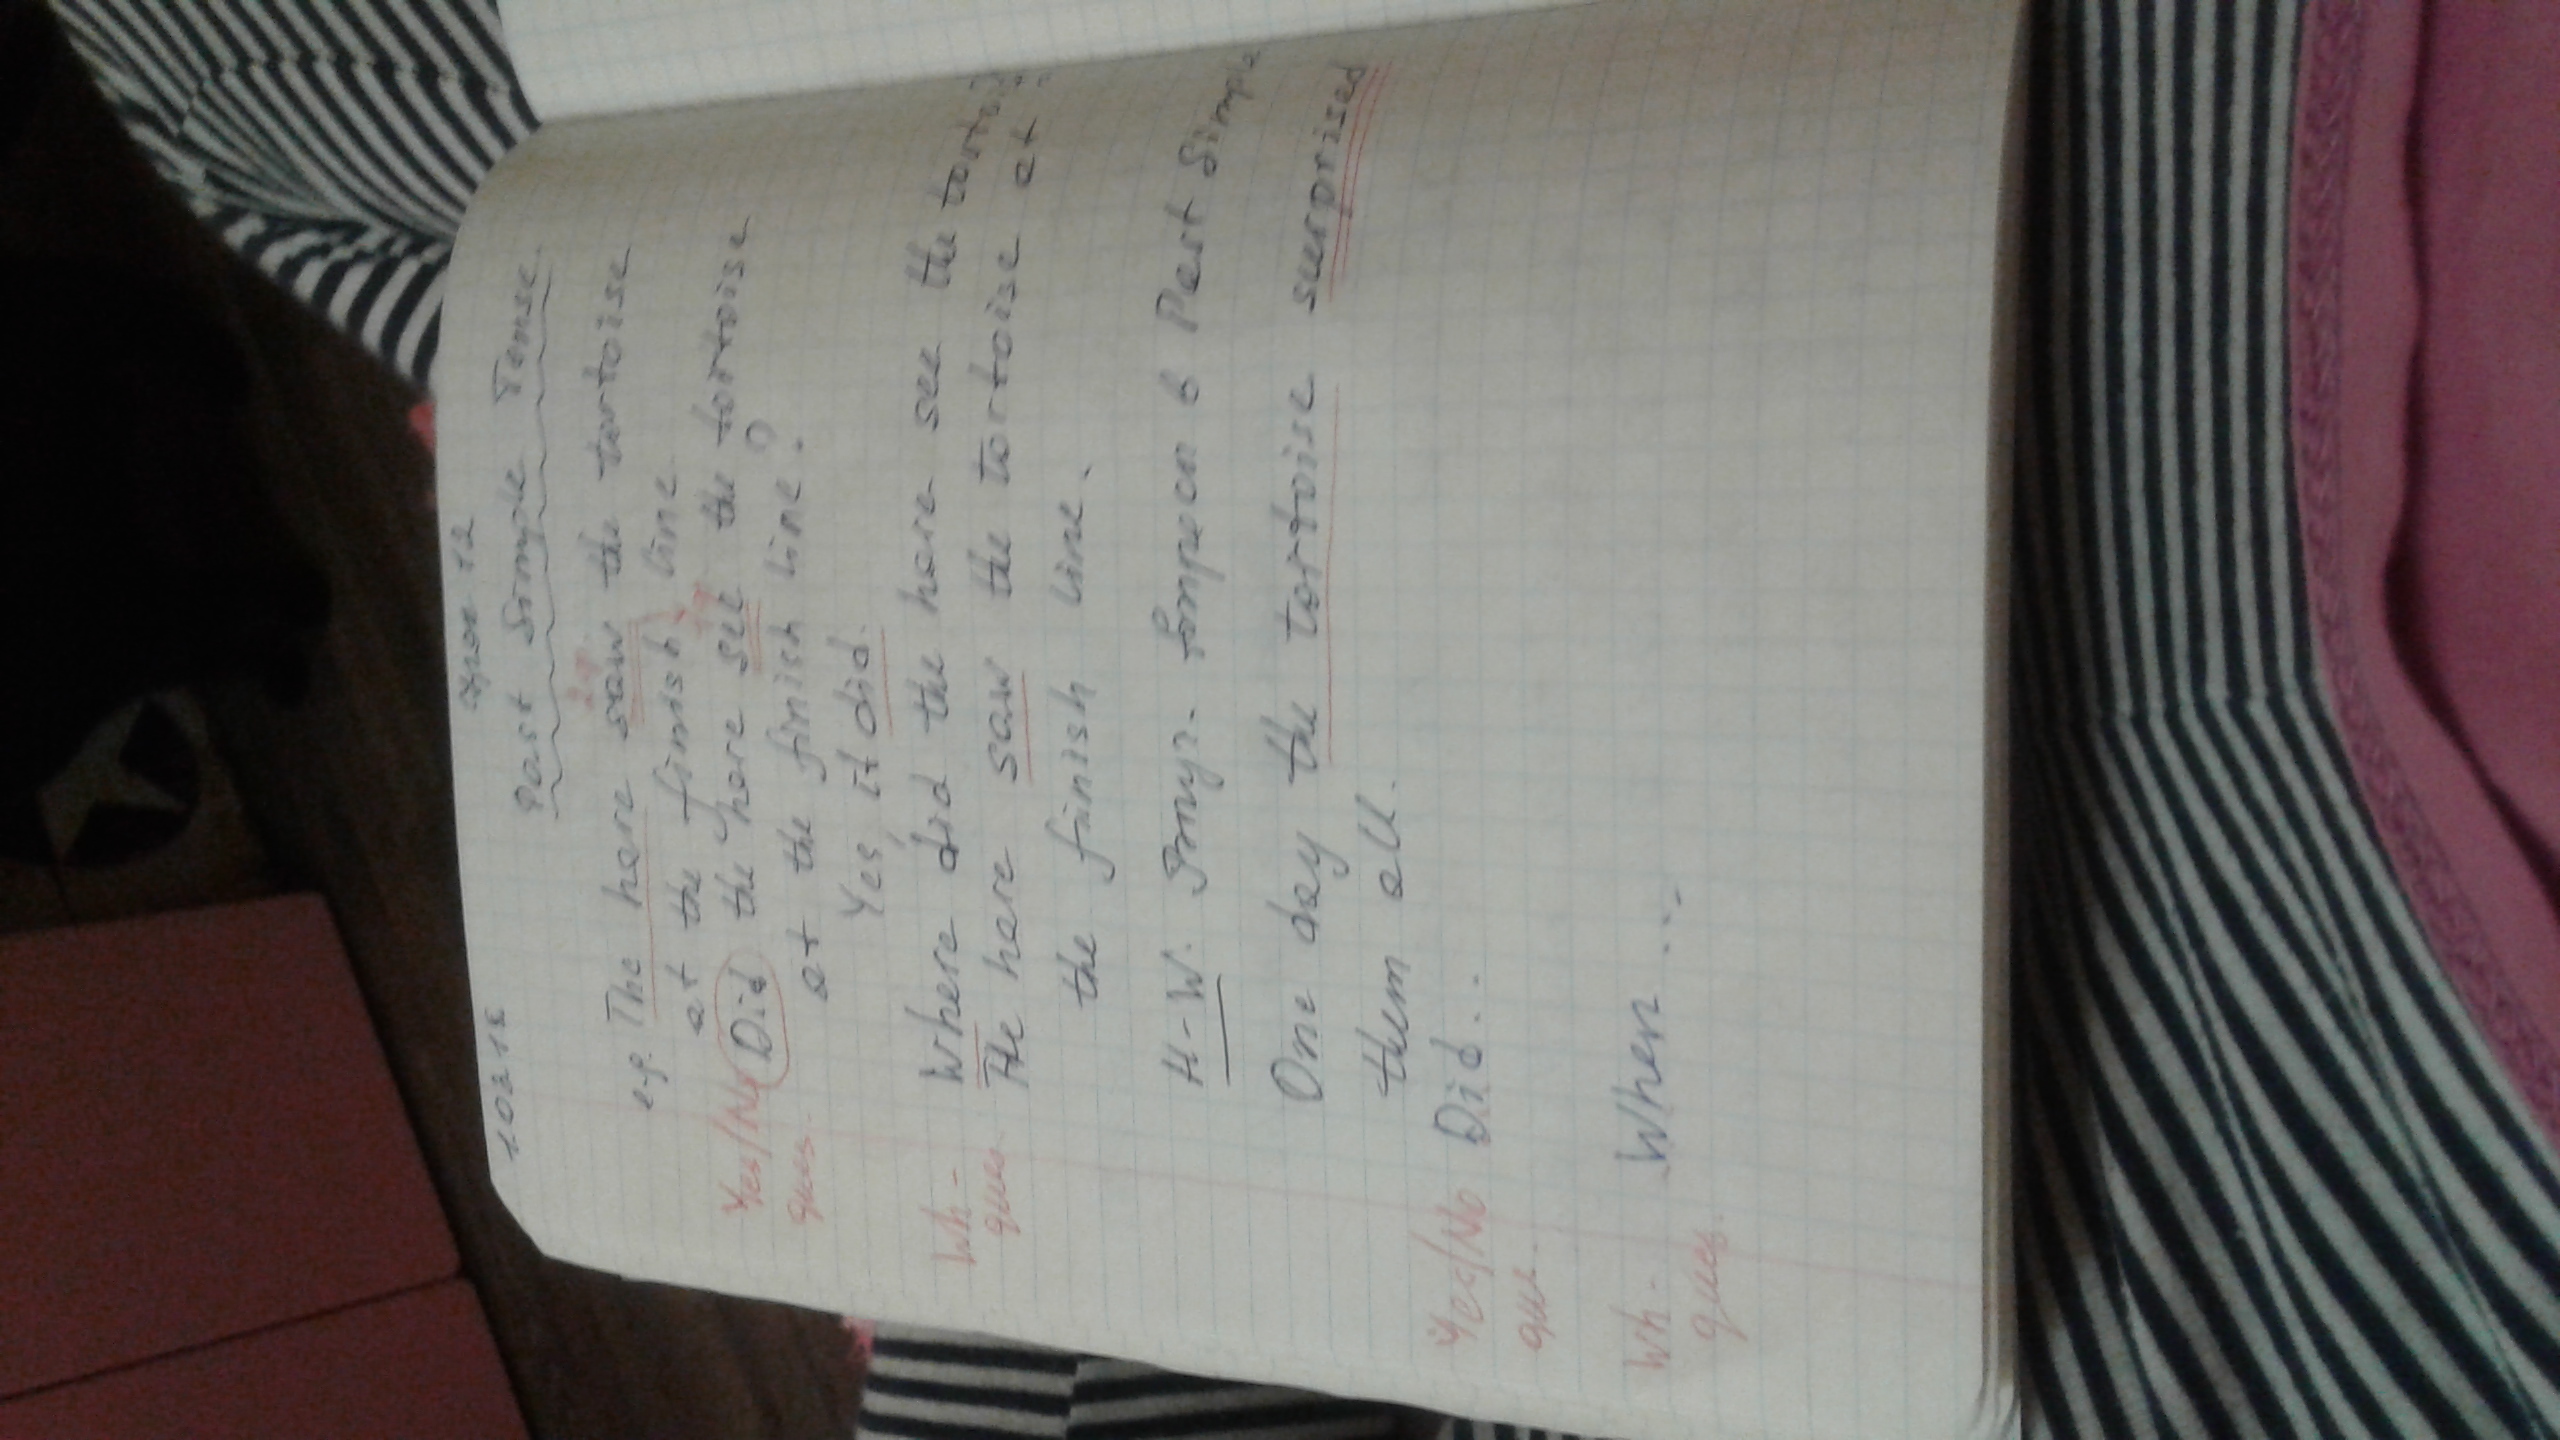 10 02 18 12
Past Simple Tense
e.g. The hare saw the tortoise
at the finish line
Yes/No Did the hare see the tortoise
ques. at the finish line?
Yes, it did.
Wh- Where did the hare see the
ques. The hare saw the tortoise at
the finish line.
H-W. глаг. в Past Simple
One day the tortoise surprised
them all.
Yes/No Did...
que.
Wh- When...
ques.